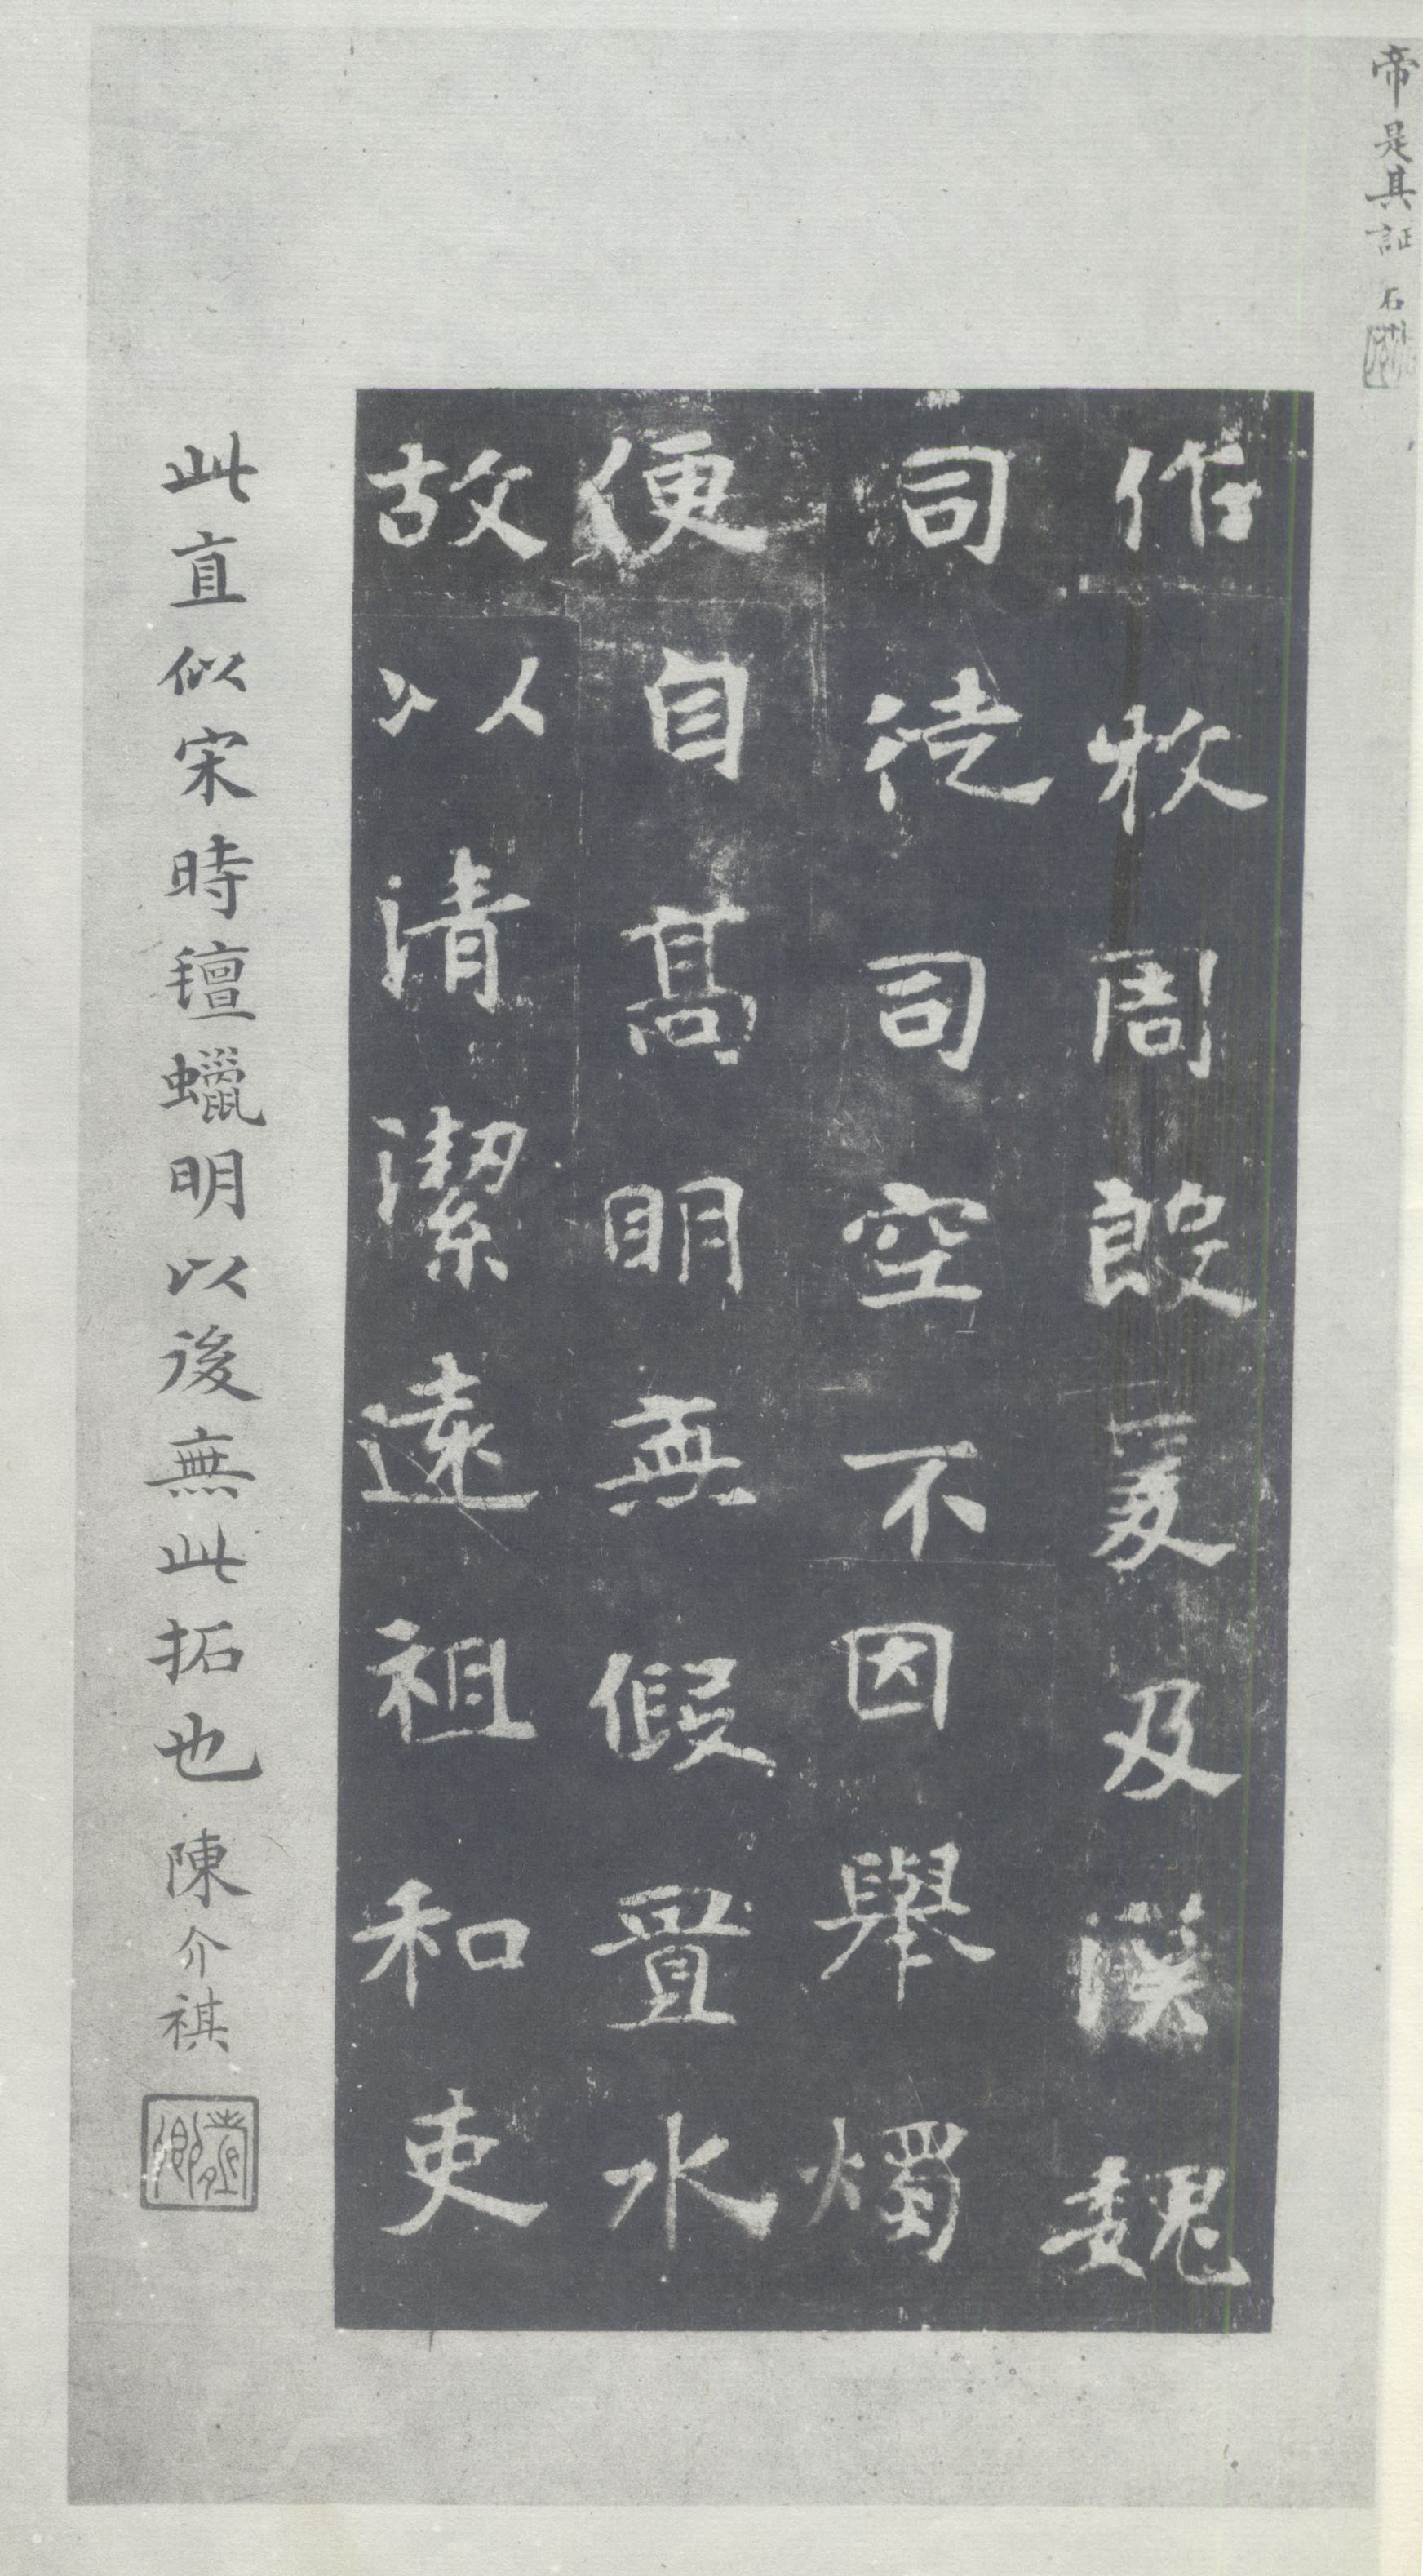 帝是其証 石
作牧周殷夏及漢魏
司徒司空不因舉燭
便自高明無假置水
故以清潔遠祖和吏
此直似宋時氊蠟明以後無此拓也 陳介祺